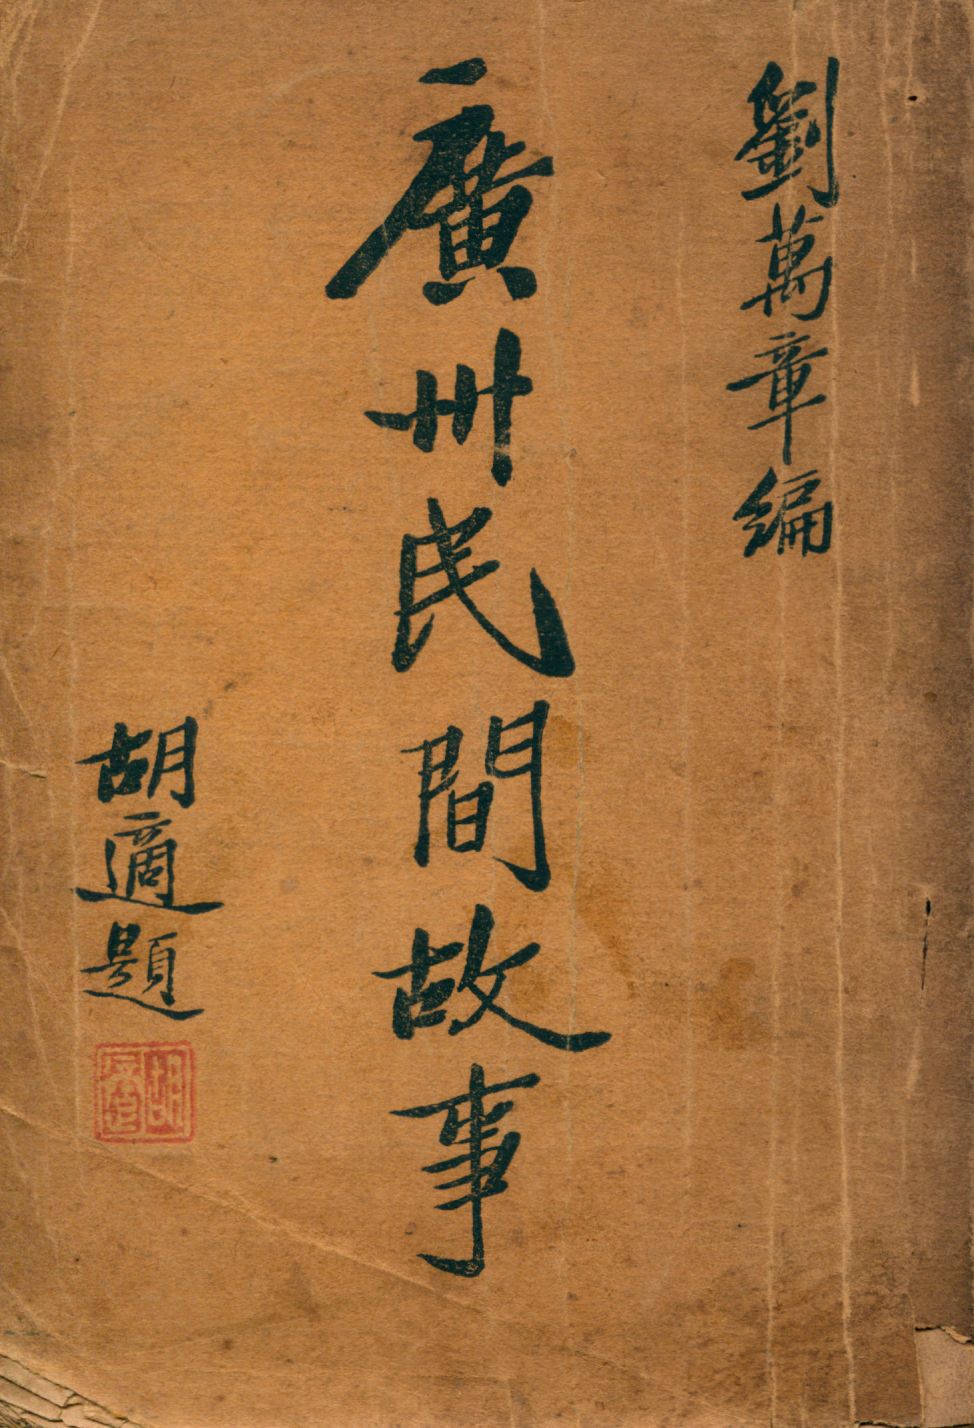 劉萬章編
廣州民間故事
胡適題